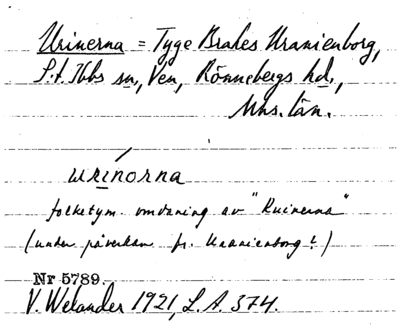 Urinerna = Tyge Brahes Uranienborg,
S:t Ibbs sn, Ven, Rönnebergs hd.,
Mhs. län.
urínorna
folketym. omdaning av "Ruinerna"
(under påverkan fr. Uranienborg?)
Nr 5789.
V. Welander 1921, L.A. 374.